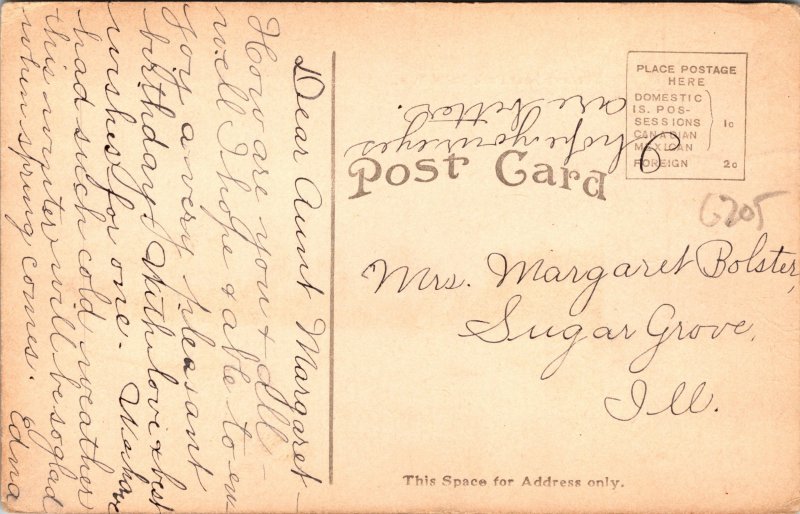 Dear Aunt Margaret-
How are you & all-
well I hope & able to en
joy a very pleasant
birthday. With love & best
wishes for one. We have
had such cold weather
this winter, will be so glad
when spring comes. Edna
I hope your eyes
are better.
Post Card
PLACE POSTAGE
HERE
DOMESTIC
IS. POS-
SESSIONS
CANADIAN
MEXICAN
1c
FOREIGN 2c
6205
Mrs. Margaret Bolster,
Sugar Grove,
Ill.
This Space for Address only.